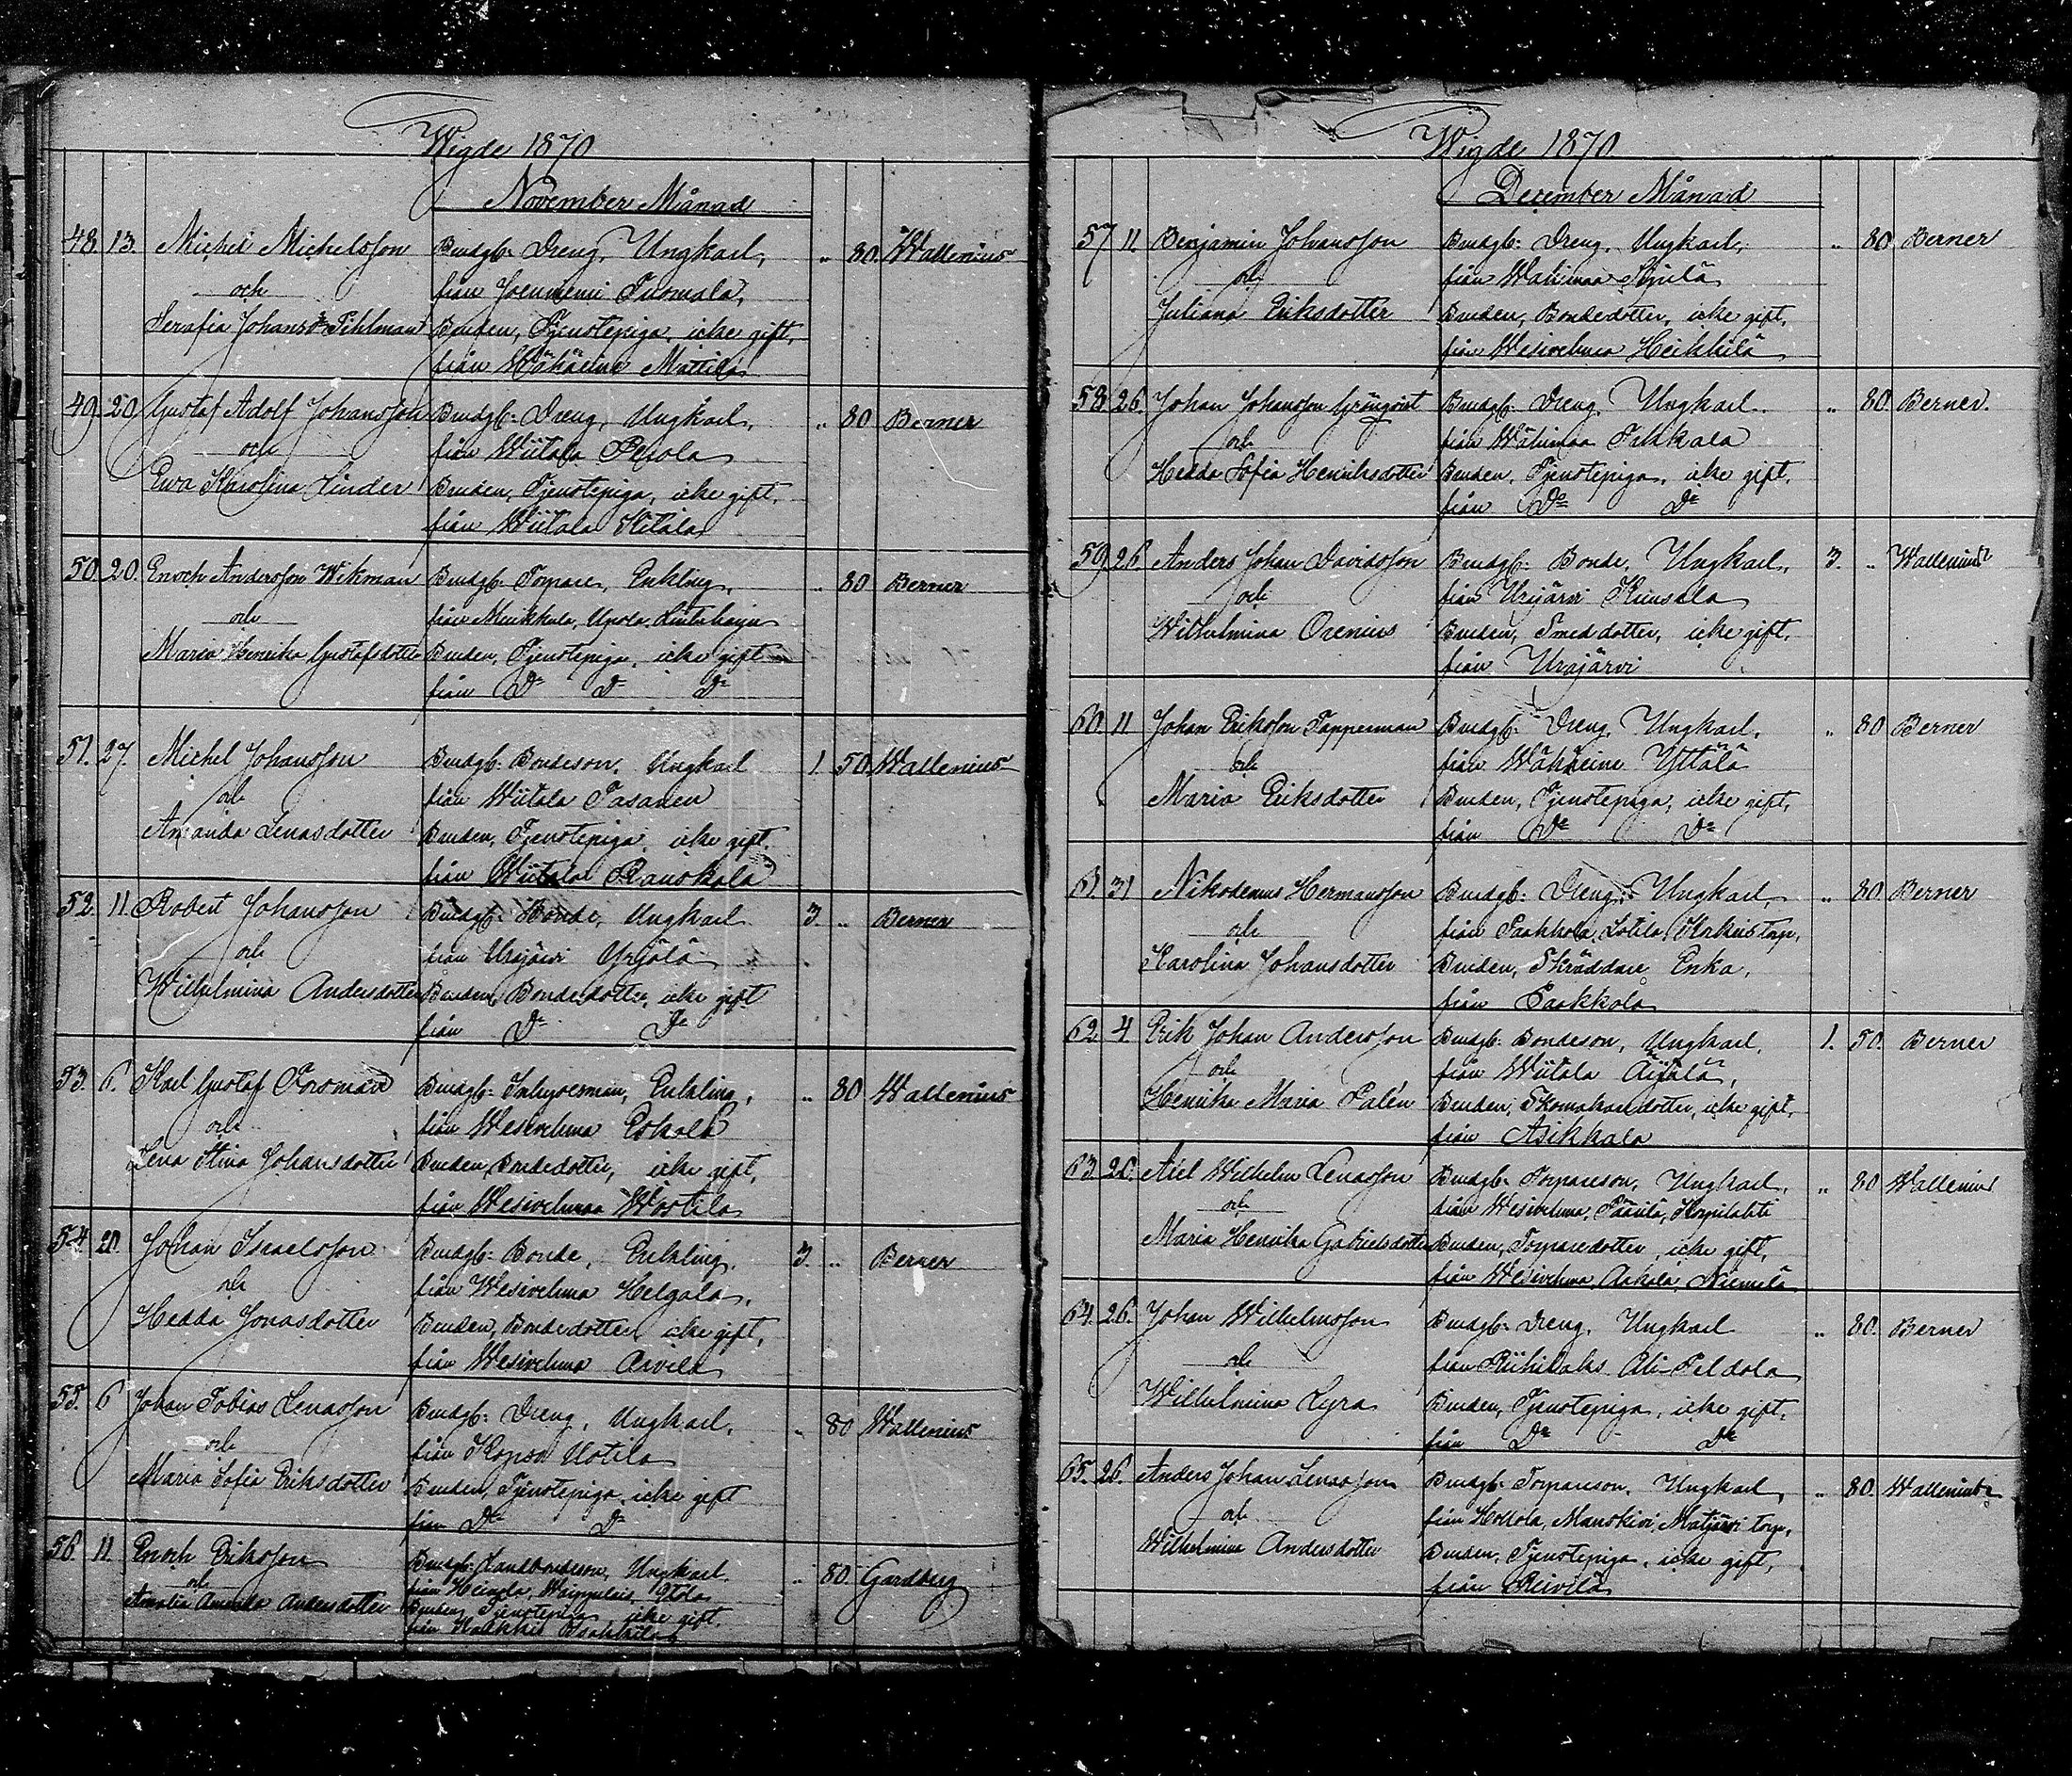 Wigde 1870
November Månad
48 13. Michel Michelsson Brudg: Dreng, Ungkarl, „ 80. Wallenius
och från Joenniemi Tuomala,
Serafia Johansdr Tihlman Bruden, Tjenstepiga, icke gift,
från Wähäeine Mattila
49. 20 Gustaf Adolf Johansson Brudg: Dreng, Ungkarl, „ 80 Berner
och från Wiitala Pesola
Ewa Karolina Linder Bruden, Tjenstepiga, icke gift,
från Wiitala
50. 20. Enoch Andersson Wikman Brudg: Torpare, Enkling, „ 80 Berner
och från
Maria Henrika Gustafsdotter Bruden, Tjenstepiga, icke gift
från Do Do Do
51. 27. Michel Johansson Brudg: Bondeson, Ungkarl 1. 50. Wallenius
och från Wiitala Tasanen
Amanda Lenasdotter Bruden, Tjenstepiga, icke gift.
från Wiitala Rauskala
52. 11. Robert Johansson Brudg: Bonde, Ungkarl 3. „ Berner
och från Urajärvi Yrjölä
Wilhelmina Andersdotter Bruden, Bondedotter, icke gift
från Do Do
53. 6. Karl Gustaf Forsman Brudg: Inhysesman, Enkling, „ 80 Wallenius
och från Wesivehmaa Eskola
Lena Stina Johansdotter Bruden, Bondedotter, icke gift,
från Wesivehmaa Wostila
54. 20. Johan Israelsson Brudg: Bonde, Enkling, 3. „ Berner
och från Wesivehmaa Helgala,
Hedda Jonasdotter Bruden, Bondedotter, icke gift,
från Wesivehmaa Arvila
55. 6 Johan Tobias Lenasson Brudg: Dreng, Ungkarl, „ 80 Wallenius
och från Kopsu Uotila
Maria Sofia Eriksdotter Bruden, Tjenstepiga, icke gift
från Do Do
56. 11. Enoch Eriksson Brudg: Landbondeson, Ungkarl, „ 80. Gardberg
och från Heinola,
Amalia Amanda Andersdotter Bruden, Tjenstepiga, icke gift,
från
Wigde 1870
December Månad
57 11. Benjamin Johansson Brudg: Dreng, Ungkarl, „ 80. Berner
och från Wähimaa
Juliana Eriksdotter Bruden, Bondedotter, icke gift,
från Wesivehmaa Heikkilä
58. 26. Johan Johansson Grönqvist Brudg: Dreng, Ungkarl „ 80. Berner.
och från Wähimaa Pekkala
Hedda Sofia Henriksdotter Bruden, Tjenstepiga, icke gift,
från Do Do
59. 26. Anders Johan Davidsson Brudg: Bonde, Ungkarl, 3. „ Wallenius
och från Urajärvi Kunsala
Wilhelmina Orenius Bruden, Smed dotter, icke gift,
från Urajärvi
60. 11 Johan Eriksson Tapperman Brudg: Dreng, Ungkarl, „ 80 Berner
och från Wähäeine Yttälä
Maria Eriksdotter Bruden, Tjenstepiga, icke gift,
från Do Do
61. 31 Nikodemus Hermansson Brudg: Dreng, Ungkarl, „ 80. Berner
och från Paakkola,
Karolina Johansdotter Bruden, Skräddare Enka,
från Paakkola
62 4 Erik Johan Andersson Brudg: Bondeson, Ungkarl, 1. 50. Berner
och från Wiitala Äijälä,
Henrika Maria Palén Bruden, Skomakaredotter, icke gift,
från Asikkala
63. 26. Axel Wilhelm Lenasson Brudg: Torpareson, Ungkarl, „ 80 Wallenius
och från Wesivehmaa,
Maria Henrika Gabrielsdotter Bruden, Torparedotter, icke gift,
från Wesivehmaa Niemelä
64. 26. Johan Wilhelmsson Brudg: Dreng, Ungkarl „ 80. Berner
och från Riihilaks Ali-Peldola
Wilhelmina Lyra Bruden, Tjenstepiga, icke gift,
från Do Do
65. 26. Anders Johan Lenasson Brudg: Torpareson, Ungkarl, „ 80. Wallenius
och från Hollola, Manskivi, torp,
Wilhelmina Andersdotter Bruden, Tjenstepiga, icke gift,
från Reivilä